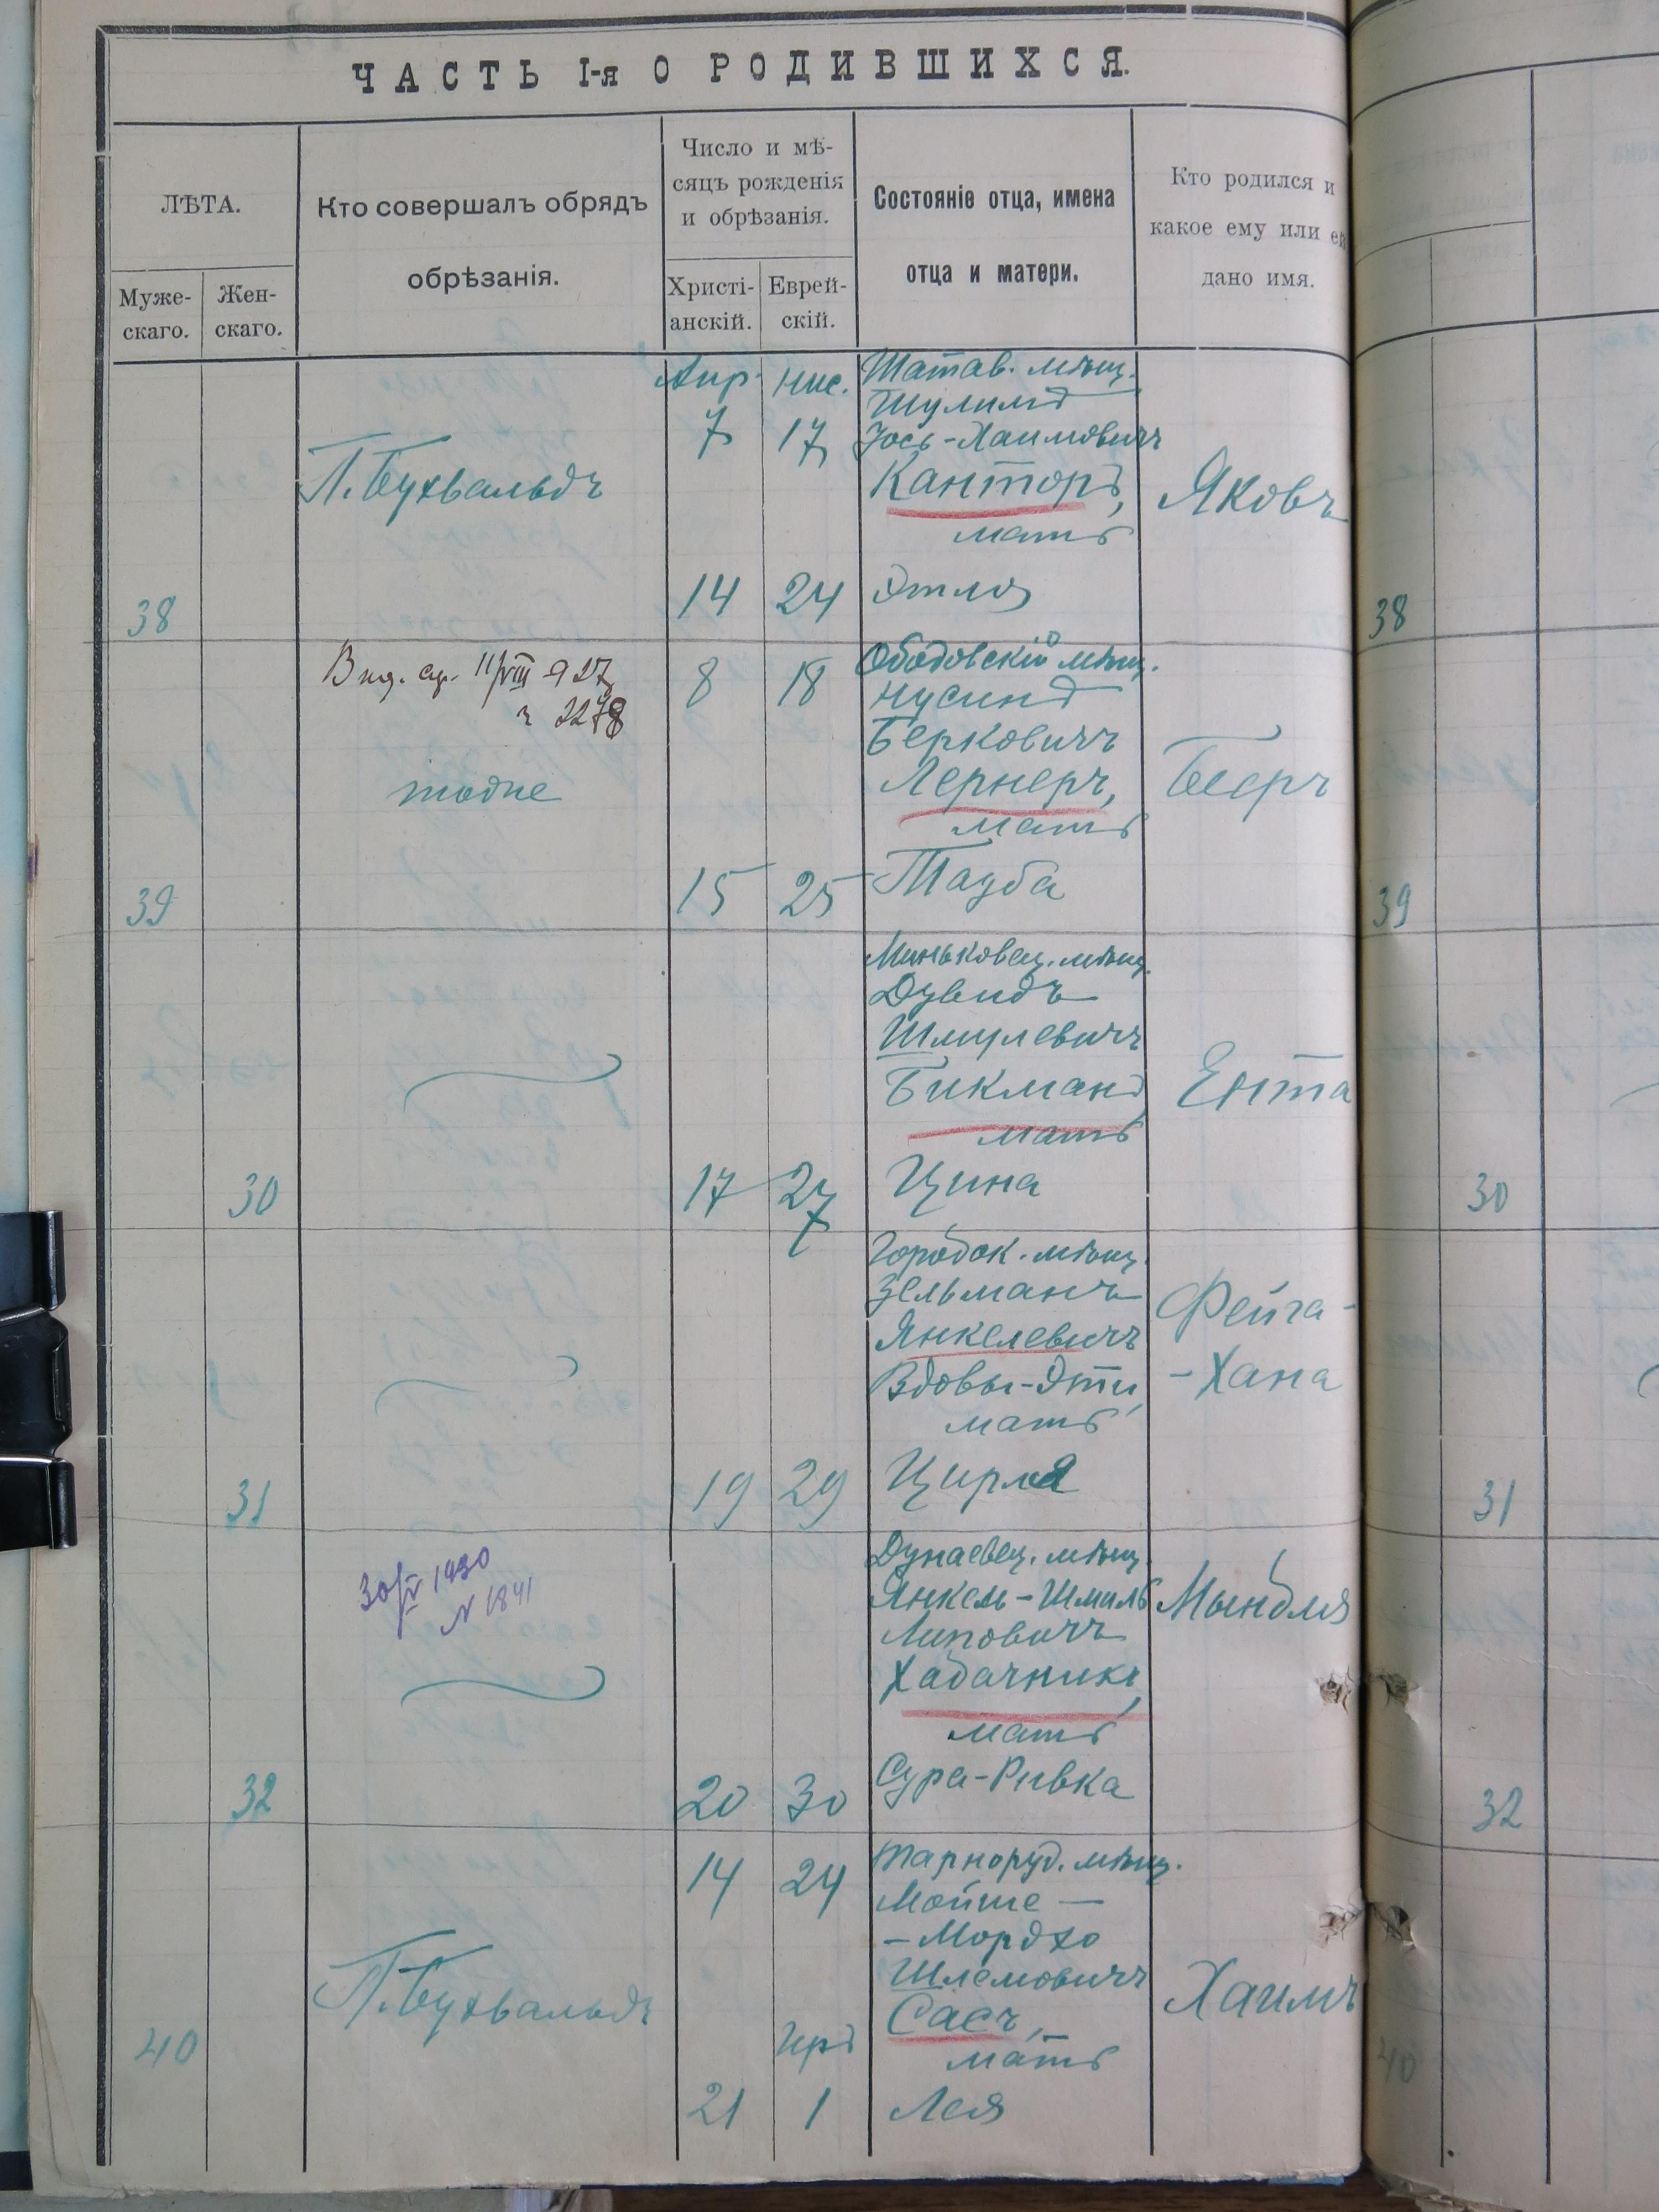 ЧАСТЬ I-я О РОДИВШИХСЯ.
ЛѢТА.
Муже-
скаго.
Жен-
скаго.
Кто совершалъ обрядъ
обрѣзанія.
Число и мѣ-
сяцъ рожденія
и обрѣзанія.
Христі-
анскій.
Еврей-
скій.
Состояніе отца, имена
отца и матери.
Кто родился и
какое ему или ей
дано имя.
38
П. Бухвальдъ
Апр. Нис.
7 17
14 24
Шатав. мѣщ.
Шулимъ
Іось-Хаимовичъ
Канторъ,
мать
Этля
Яковъ
38
39
11/VIII 927
тоже
8 18
15 25
Ободовскій мѣщ.
Нусинъ
Берковичъ
Лернеръ,
мать
Тауба
Бееръ
39
30
17 27
Миньковец. мѣщ.
Дувидъ
Шмулевичъ
Бикманъ
мать
Цина
Ента
30
31
19 29
Городок. мѣщ.
Зельманъ
Янкелевичъ
Вдовы-Эти,
мать
Цирля
Фейга-
-Хана
31
32
30/IV 1930
N 1841
20 30
Дунаевец. мѣщ.
Янкель-Шмиль
Липовичъ
Хабачникъ,
мать
Сура-Ривка
Мындля
32
40
П. Бухвальдъ
14 24
Иръ
21 1
Тарноруд. мѣщ.
Мойше-
-Мордхо
Шлемовичъ
Саесъ,
мать
Лея
Хаимъ
40